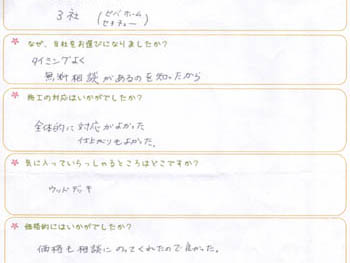 3社 (
なぜ、当社をお選びになりましたか?
タイミングよく
無断相談があるのを知ったから
施工の対応はいかがでしたか?
全体的に対応がよかった
仕上がりもよかった。
気に入っていらっしゃるところはどこですか?
ウッドデッキ
価格的にはいかがでしたか?
価格も相談にのってくれたので良かった。